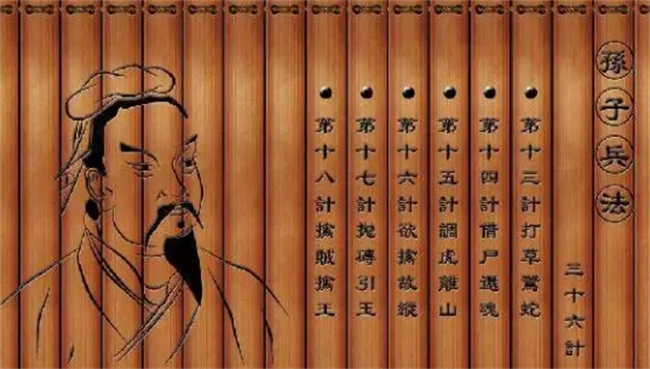 孫子兵法
三十六計
第十三計打草驚蛇
第十四計借尸還魂
第十五計調虎離山
第十六計欲擒故縱
第十七計拋磚引玉
第十八計擒賊擒王